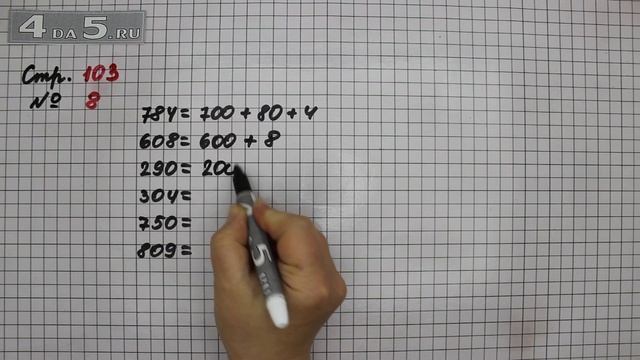 4 DA 5.RU
Стр. 103
№ 8
784 = 700 + 80 + 4
608 = 600 + 8
290 = 200
304 =
750 =
809 =